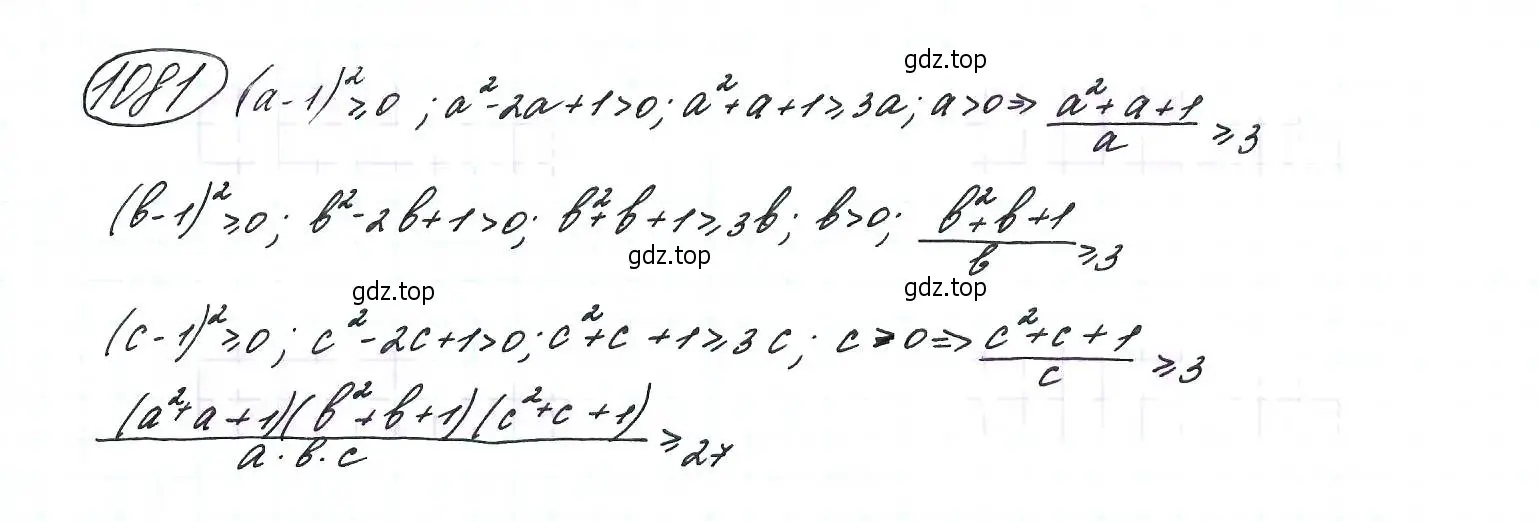 gdz.top
1081 (a-1)² ≥ 0 ; a²-2a+1>0; a²+a+1 ≥ 3a; a>0 ⇒ (a²+a+1)/a ≥ 3
(b-1)² ≥ 0; b²-2b+1>0; b²+b+1 ≥ 3b; b>0; (b²+b+1)/b ≥ 3
gdz.top
gdz.top
gdz.top
(c-1)² ≥ 0; c²-2c+1>0; c²+c+1 ≥ 3c; c>0 ⇒ (c²+c+1)/c ≥ 3
(a²+a+1)(b²+b+1)(c²+c+1)/a·b·c ≥ 27